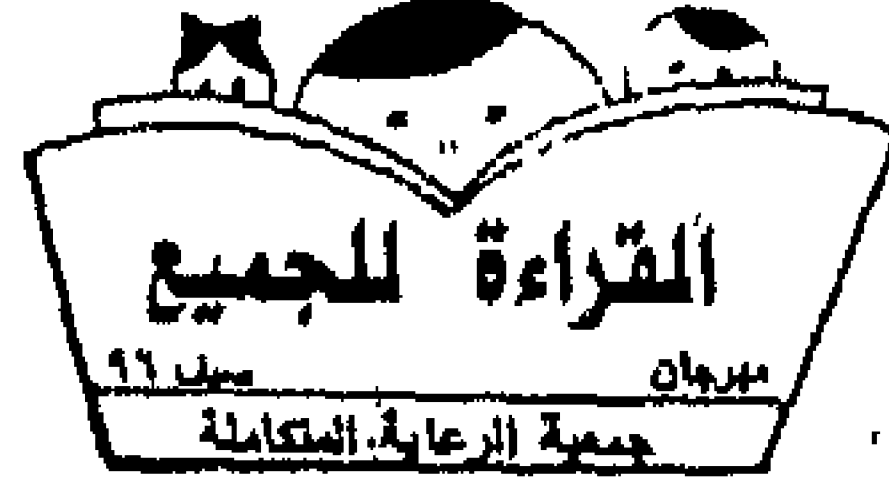 القراءة للجميع
مهرجان صيف ٩٦
جمعية الرعاية المتكاملة